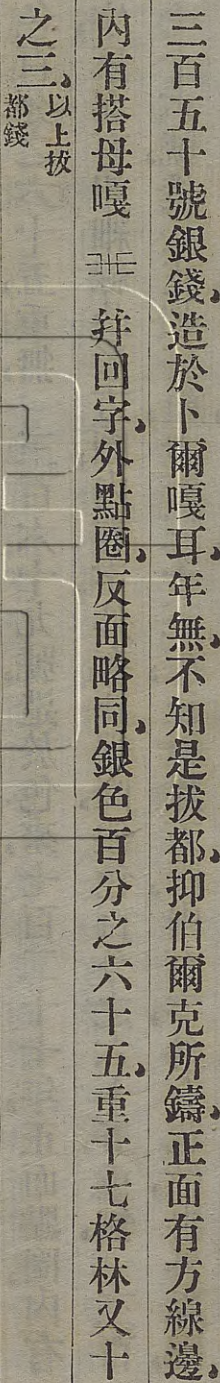 三百五十號銀錢、造於卜爾嘎耳、年無、不知是拔都、抑伯爾克所鑄、正面有方線邊、
內有搭母嘎 幷回字、外點圈、反面略同、銀色百分之六十五、重十七格林又十
之三、以上拔都錢